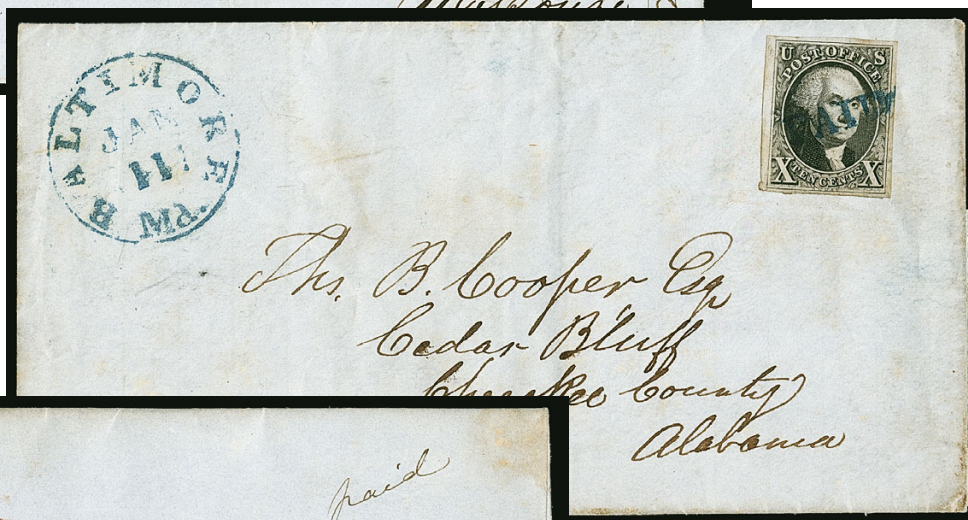 BALTIMORE
JAN
11
PM
U S
POST OFFICE
X TEN CENTS X
Ths. B. Cooper Esq
Cedar Bluff
Cherokee County
Alabama
paid